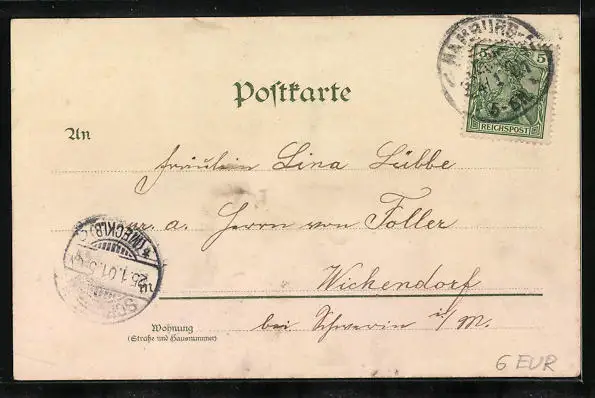 HAMBURG
5
REICHSPOST
5-6N
Postkarte
An
Fräulein Lina Lübbe
Herrn von Foller
Wickendorf
in
(MECKLB)
25.1.01.
SCH
Wohnung
(Straße und Hausnummer)
bei Schwerin i/M.
6 EUR